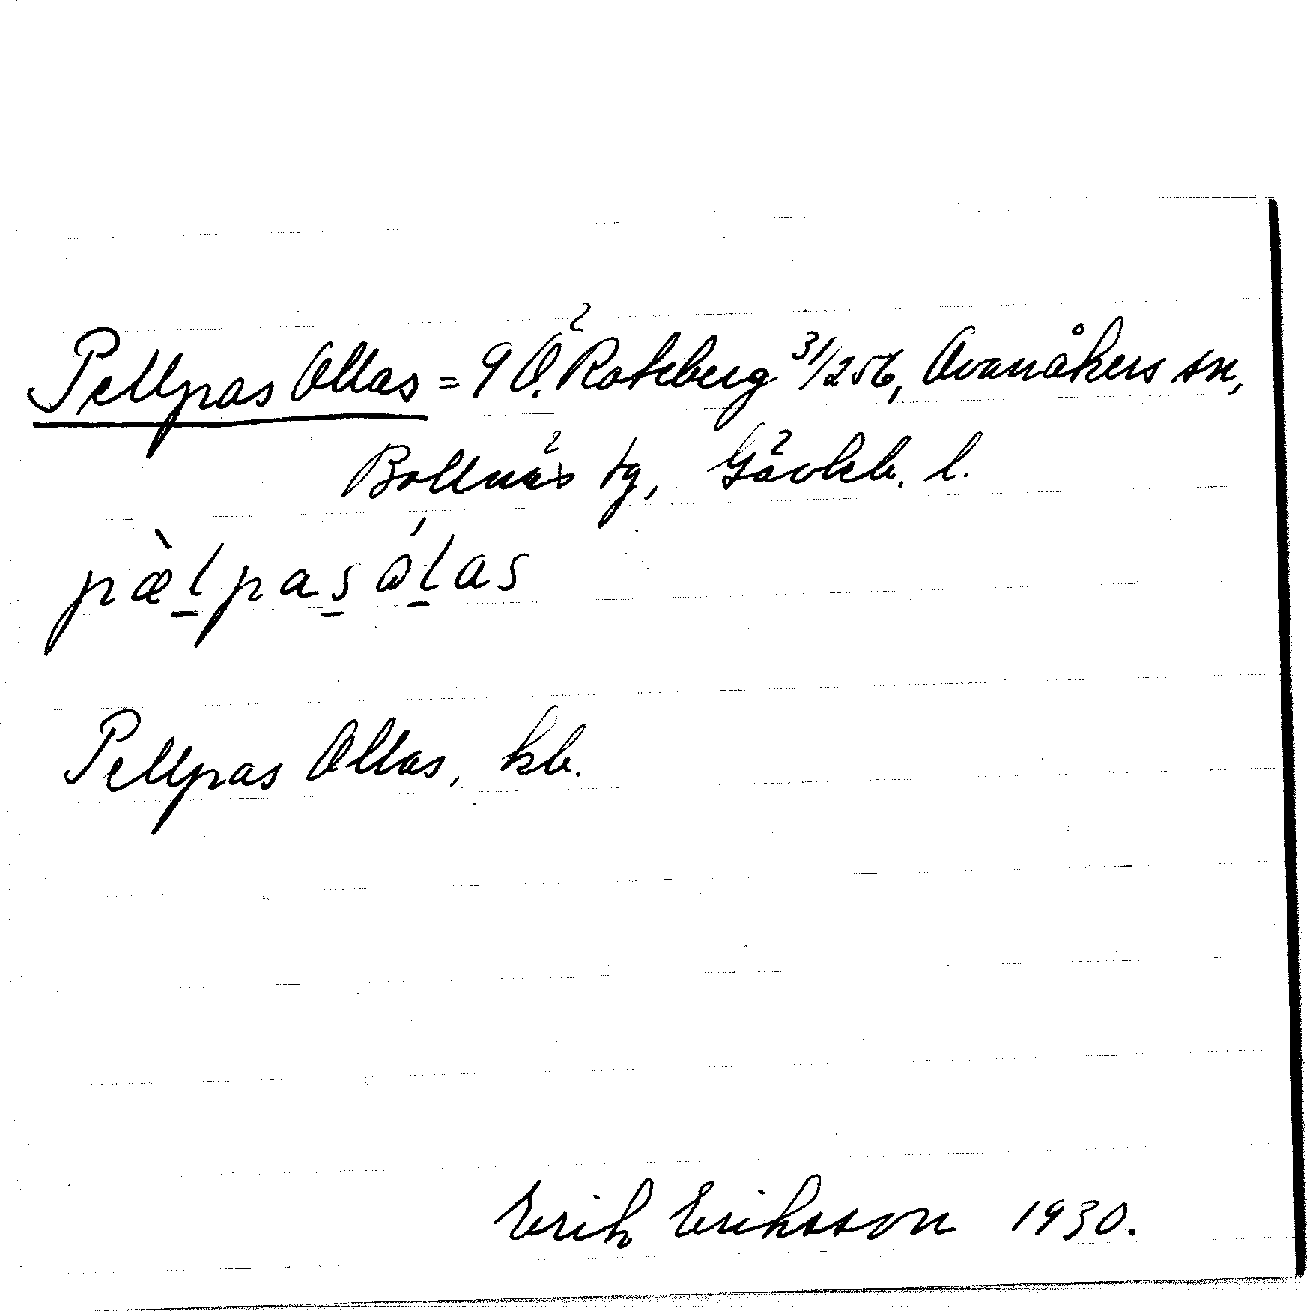 Pellpas Ollas = 9 Ö. Roteberg 31/256, Ovanåkers sn,
Bollnäs tg, Gävleb. l.
pæ̀lpasólas
Pellpas Ollas, kb.
Erik Eriksson 1930.